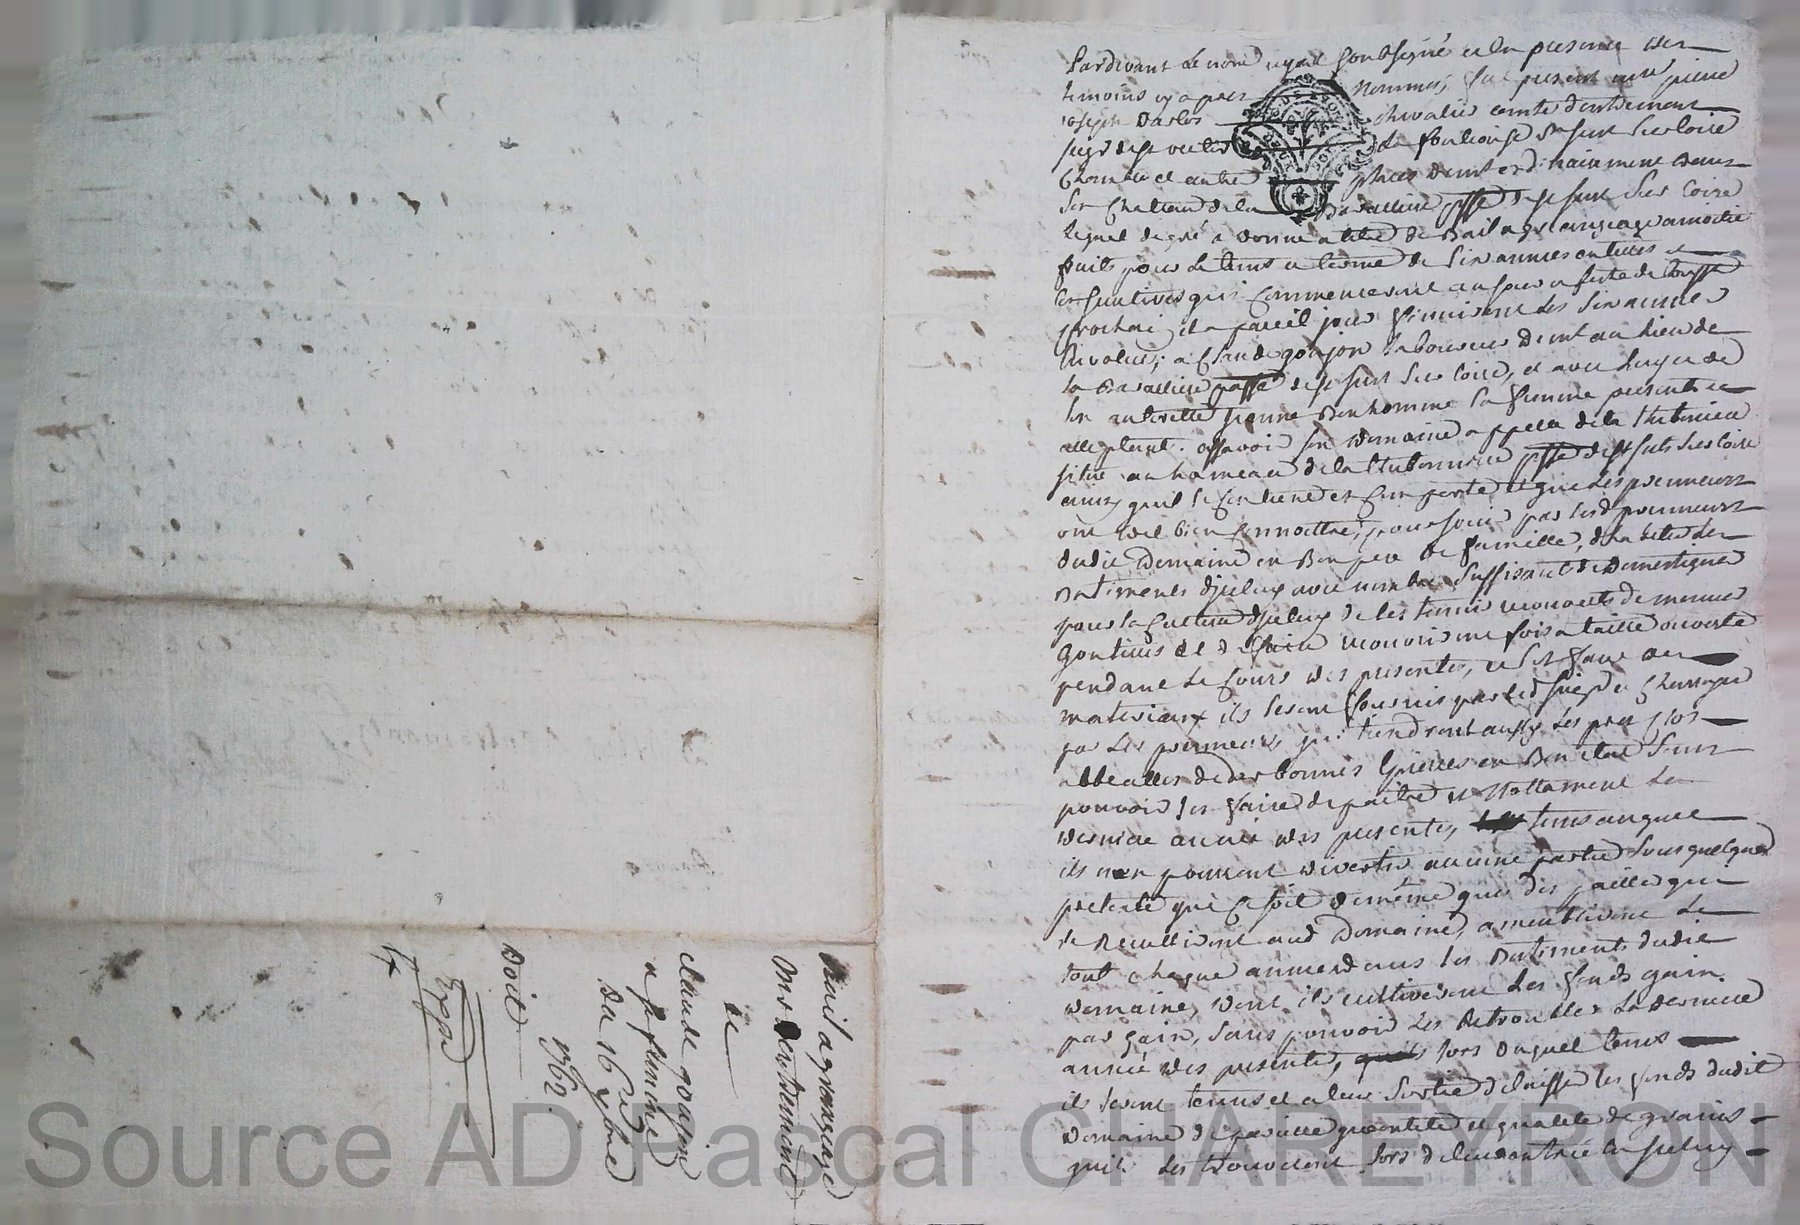 Pardevant le no.re royal soussigné et en presence des
temoins cy apres nommés, fut present m.re pierre
joseph Darlos chevalier comte dentremont
seig.r de la foulouse St just sur loire
et autres places demt ordinairement dans
son chateau de la paroisse de St just sur Loire
lequel de gré a donné a titre de Bail a grangeage a moitié
fruits pour le tems et terme de six années entieres et
consecutives qui commenceront au jour et feste de touss.t
prochain et a pareil jour finiront les six années
revolues; a Claude goujon laboureur demt au lieu de
la Baralliere passe de St just sur loire, et avec luy et de
son autorité jeanne Bonhomme sa femme presente et
acceptant. assavoir un domaine appellé de la
situé au hameau de la psse de St just sur loire
ainsy quil se contient et comporte et que les prenneurs
ont dit bien connoittre, pour jouir par lesd. prenneurs
dudit Domaine en Bon pere de famille, d'habiter les
Batiments d'jceluy avec nombre suffisant de Domestiques
pour la culture d'jceluy de les tenir couverts de menues
goutieres et de faire recouvrir une fois a taille ouverte
pendant le cours des presentes, et s'il faut des
materiaux ils seront fournis par led. seigr. et charroyés
par les prenneurs, qui tiendront aussy les prez clos
de bonnes en Bon etat sans
pouvoir les faire depaitre et nottament la
derniere année des presentes, tems auquel
ils n'en pourront divertir aucune partie sous quelque
pretexte que ce soit de même que des pailles qui
se Recuilliront aud. Domaine,
tout chaque année dans les Batiments dudit
domaine, dont ils cultiveront les fonds gain
par gain, sans pouvoir les Retroubler la derniere
année des presentes, lors duquel tems
ils seront tenus et a leur sortie de laisser les fonds dudit
Domaine de pareille quantité et qualité de grains
quils les trouveront lors de leur entrée en jceluy
Bail a grangeage
Mr Dentremont
a
claude goujon
a St
Du 16 7bre
1762
Doit
Source AD Pascal CHAREYRON